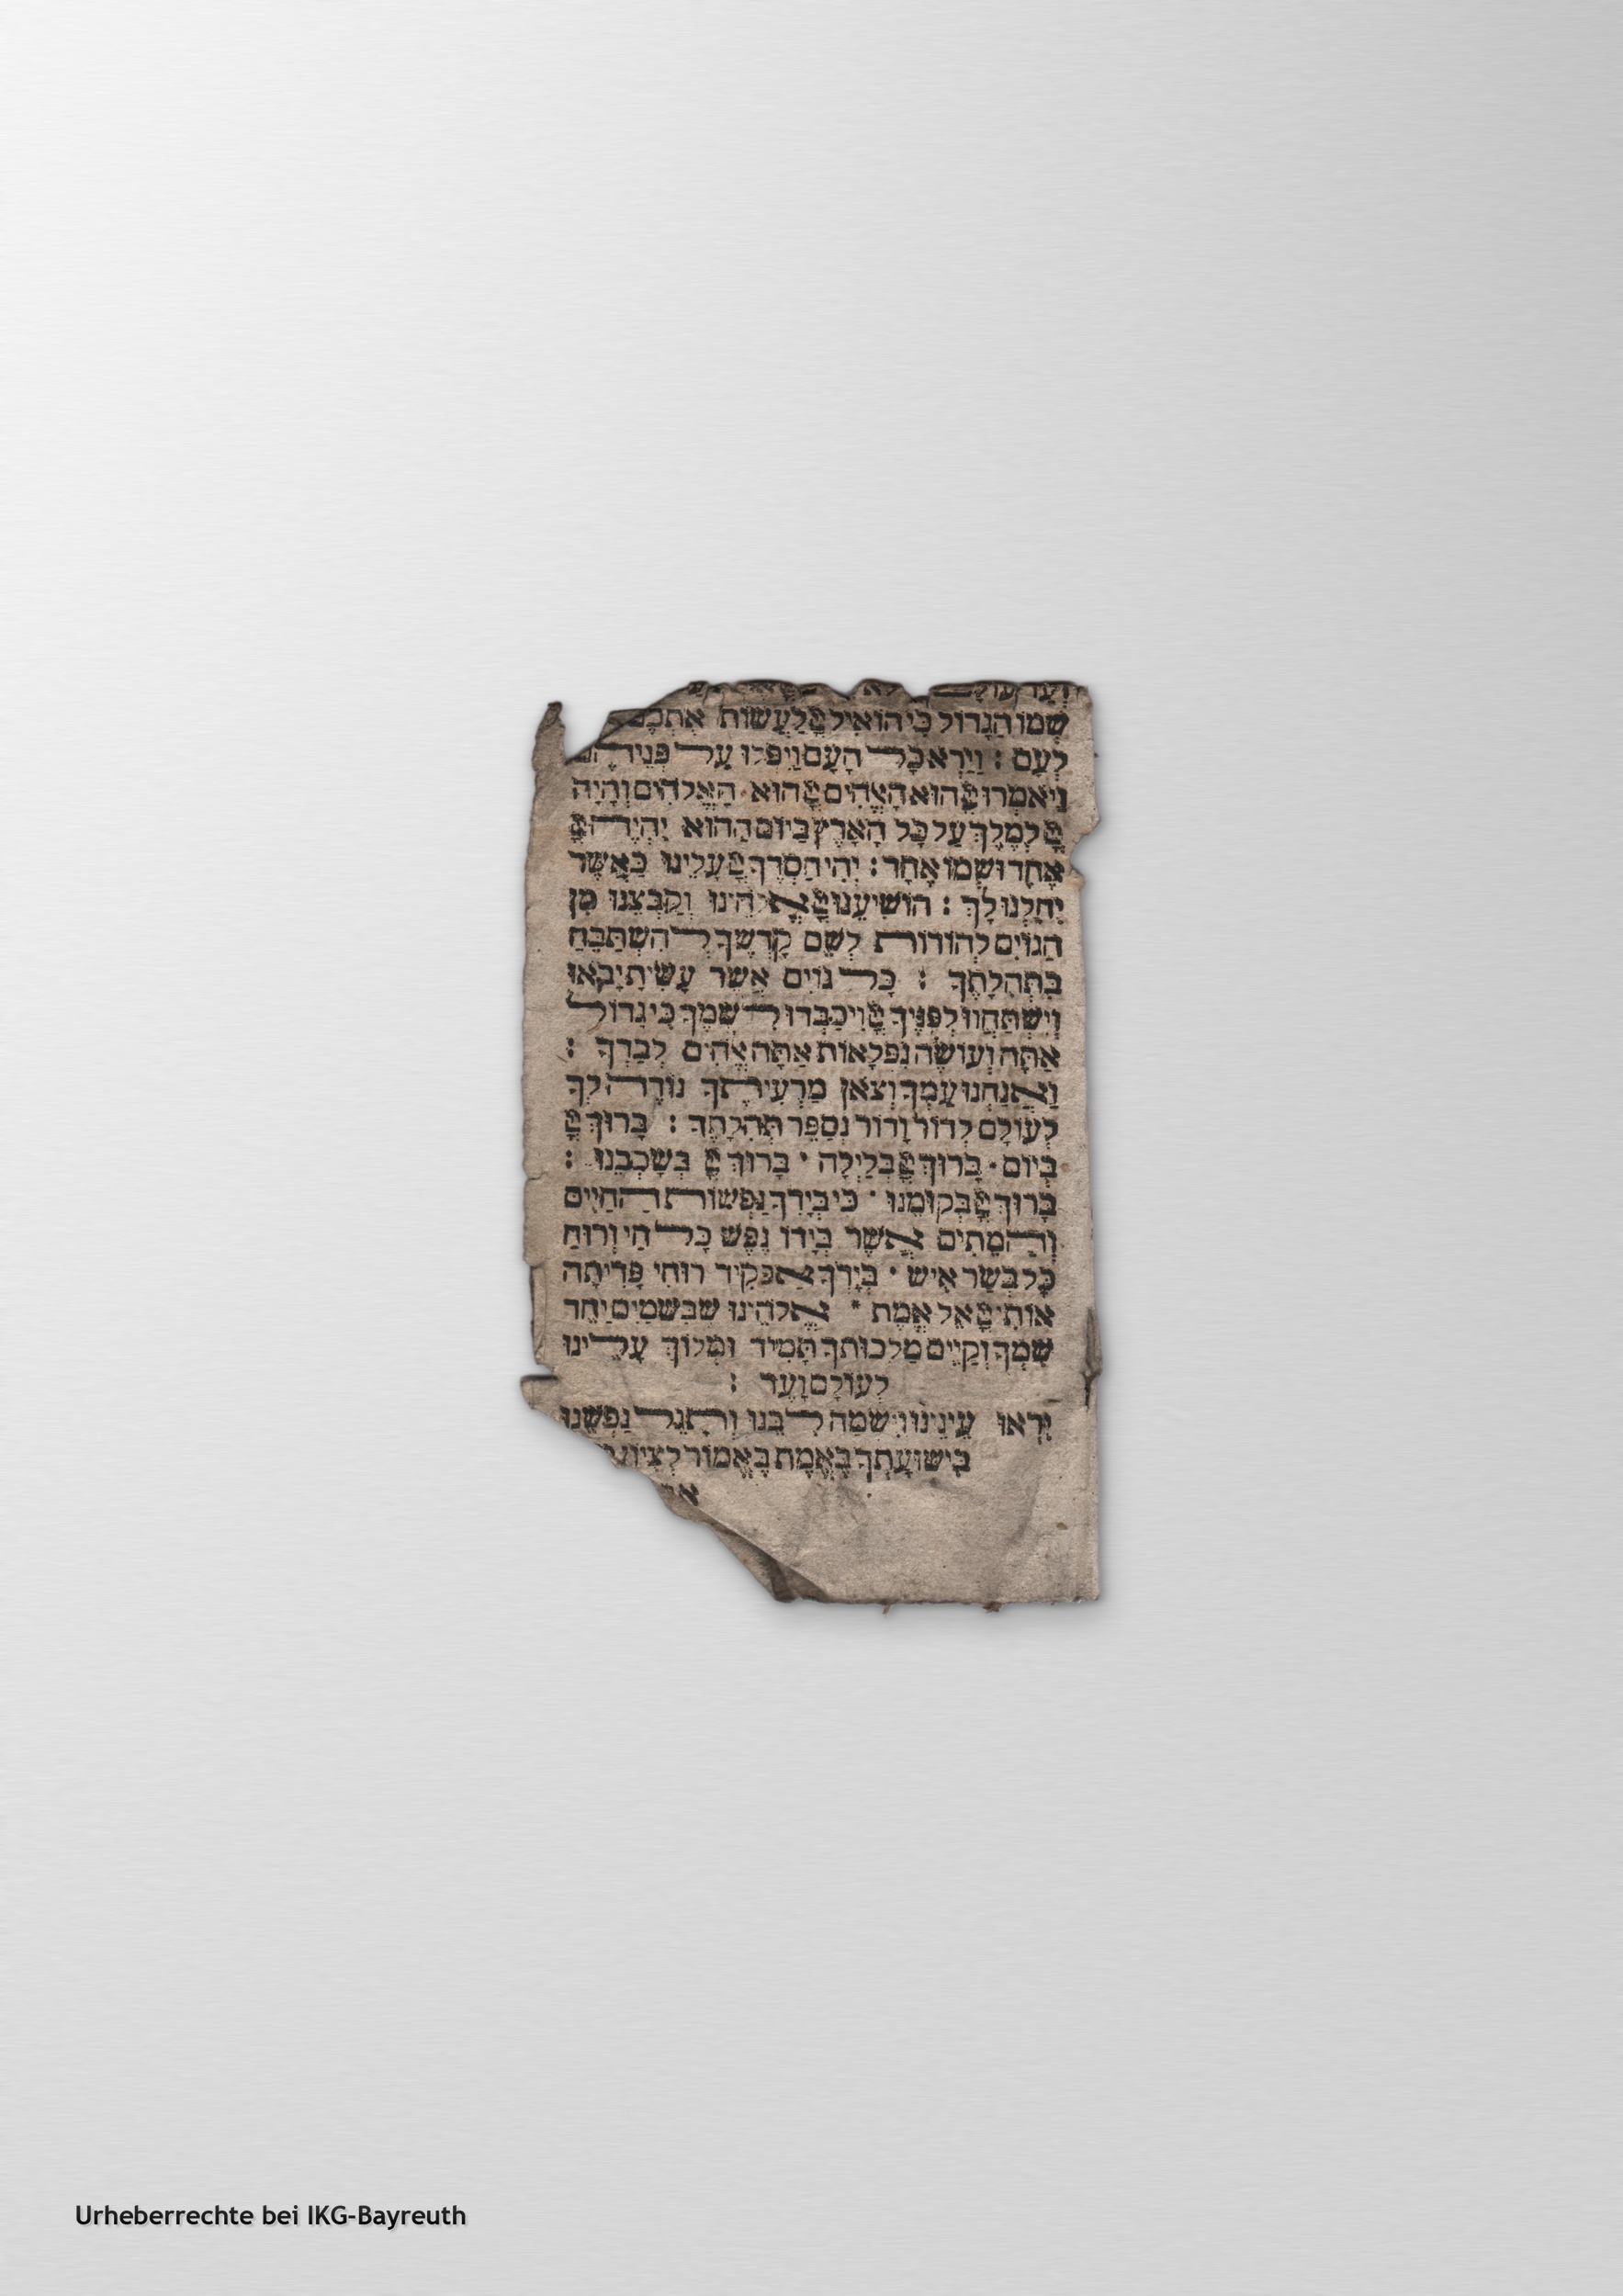 ועד עולם
שמו הגדול כי הואיל יְיָ לַעֲשׂוֹת אֶתְכֶם
לְעַם : וַיַרְא כָּל הָעָם וַיִפְּלוּ עַל פְּנֵיהֶם
וַיֹאמְרוּ יְיָ הוּא הָאֱלֹהִים יְיָ הוּא הָאֱלֹהִים וְהָיָה
יְיָ לְמֶלֶךְ עַל כָּל הָאָרֶץ בַּיוֹם הַהוּא יִהְיֶה יְיָ
אֶחָד וּשְׁמוֹ אֶחָד : יְהִי חַסְדְךָ יְיָ עָלֵינוּ כַּאֲשֶׁר
יִחַלְנוּ לָךְ : הוֹשִׁיעֵנוּ יְיָ אֱלֹהֵינוּ וְקַבְּצֵנוּ מִן
הַגוֹיִם לְהוֹדוֹת לְשֵׁם קָדְשֶׁךָ לְהִשְׁתַּבֵּחַ
בִּתְהִלָתֶךָ : כָּל גוֹיִם אֲשֶׁר עָשִׂיתָ יָבֹאוּ
וְיִשְׁתַּחֲווּ לְפָנֶיךָ יְיָ וִיכַבְּדוּ לִשְׁמֶךָ כִּי גָדוֹל
אַתָּה וְעוֹשֵׂה נִפְלָאוֹת אַתָּה אֱלֹהִים לְבַדֶךָ :
וַאֲנַחְנוּ עַמְךָ וְצֹאן מַרְעִיתֶךָ נוֹדֶה לְךָ
לְעוֹלָם לְדוֹר וָדוֹר נְסַפֵּר תְּהִלָתֶךָ : בָּרוּךְ יְיָ
בַּיוֹם · בָּרוּךְ יְיָ בַּלַיְלָה · בָּרוּךְ יְיָ בְּשָׁכְבֵנוּ :
בָּרוּךְ יְיָ בְּקוּמֵנוּ · כִּי בְיָדְךָ נַפְשׁוֹת הַחַיִים
וְהַמֵתִים אֲשֶׁר בְּיָדוֹ נֶפֶשׁ כָּל חַי וְרוּחַ
כָּל בְּשַׂר אִישׁ · בְּיָדְךָ אַפְקִיד רוּחִי פָּדִיתָה
אוֹתִי יְיָ אֵל אֱמֶת · אֱלֹהֵינוּ שֶׁבַּשָׁמַיִם יַחֵד
שִׁמְךָ וְקַיֵים מַלְכוּתְךָ תָּמִיד וּמְלוֹךְ עָלֵינוּ
לְעוֹלָם וָעֶד :
יִרְאוּ עֵינֵינוּ וְיִשְׂמַח לִבֵּנוּ וְתָגֵל נַפְשֵׁנוּ
בִּישׁוּעָתְךָ בֶּאֱמֶת בֶּאֱמוֹר לְצִיוֹן
Urheberrechte bei IKG-Bayreuth